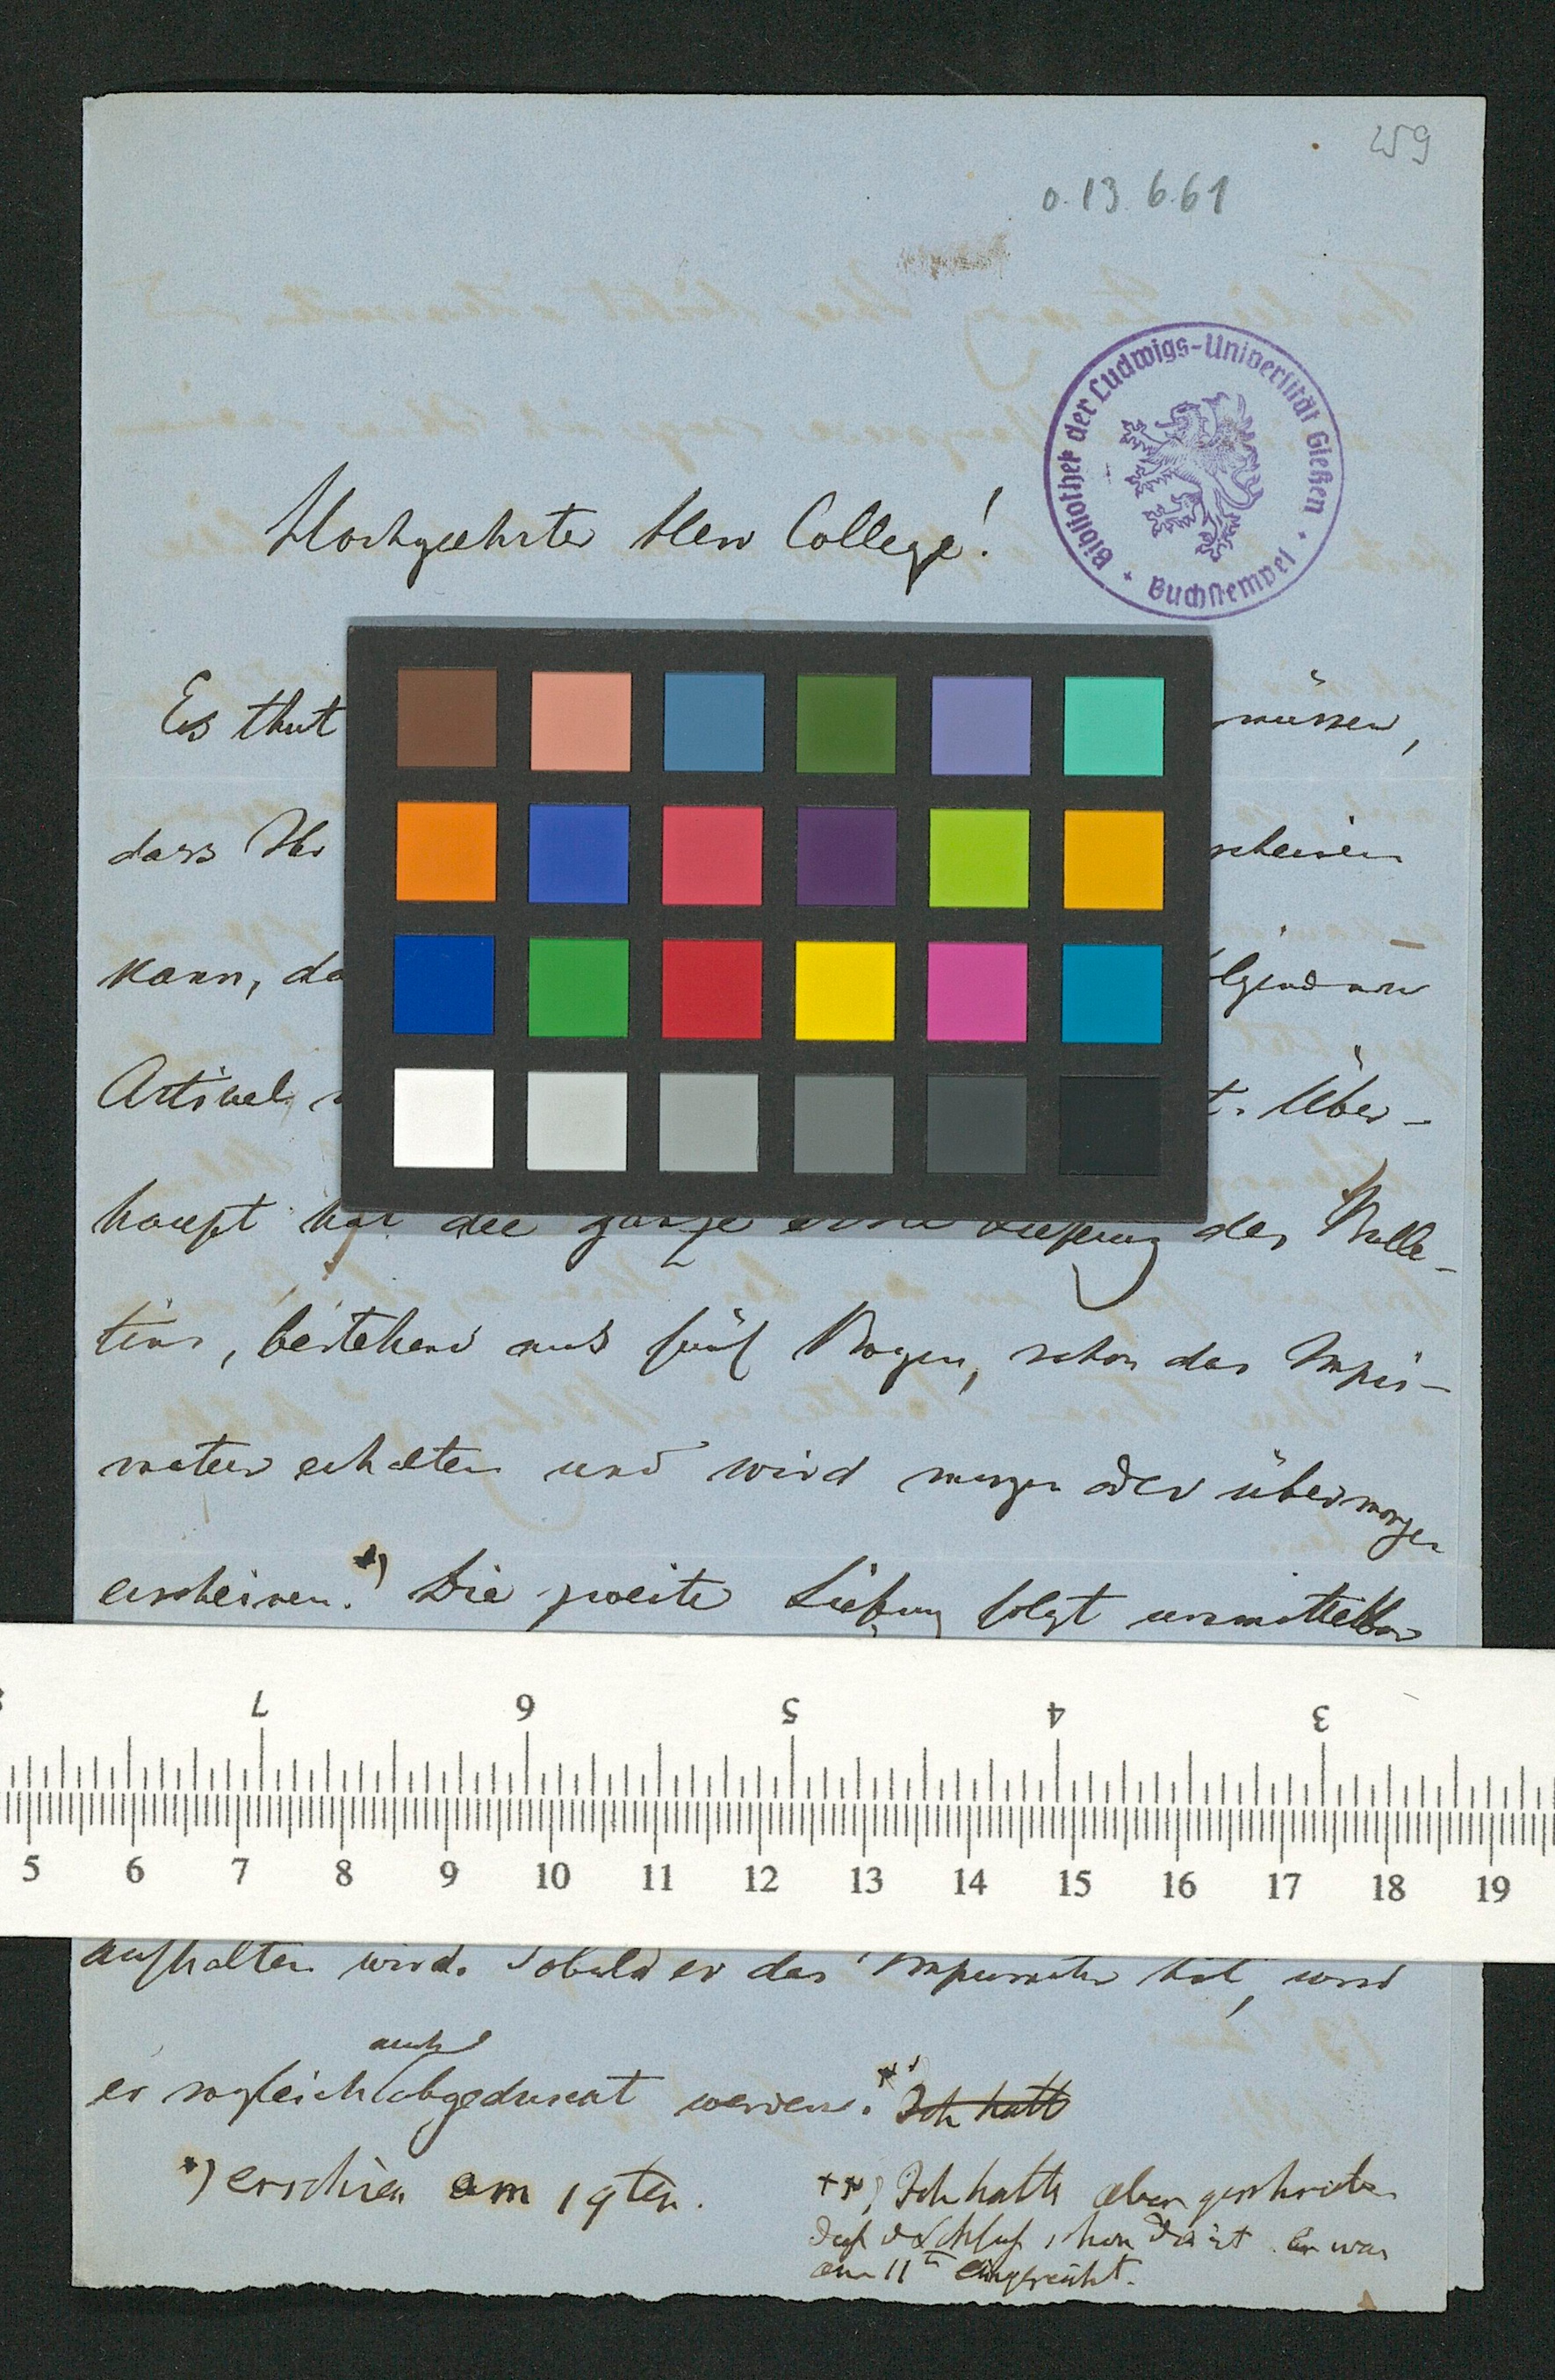 259
o. 13. 6. 61
Bibliothek der Ludwigs-Universität Gießen · Buchstempel ·
Hochgeehrter Herr College!
Es thut müssen,
dass Ihr
kann, da
Artikel t. Über-
haupt hat die ganze erste Lieferung des Bulle-
tins, bestehend aus fünf Bogen, schon das Impri-
matur erhalten und wird morgen oder übermorgen
erscheinen. *) Die zweite Lieferung folgt unmittelbar
7 6 5 4 3
5 6 7 8 9 10 11 12 13 14 15 16 17 18 19
aufhalten wird. Sobald er das Imprimatur hat, wird
auch
er sogleich abgedruckt werden. **) Ich hatte
*) erschien am 19ten.
**) Ich hatte eben geschrieben
daß d Schluß schon da ist. Er war
am 11t eingereicht.